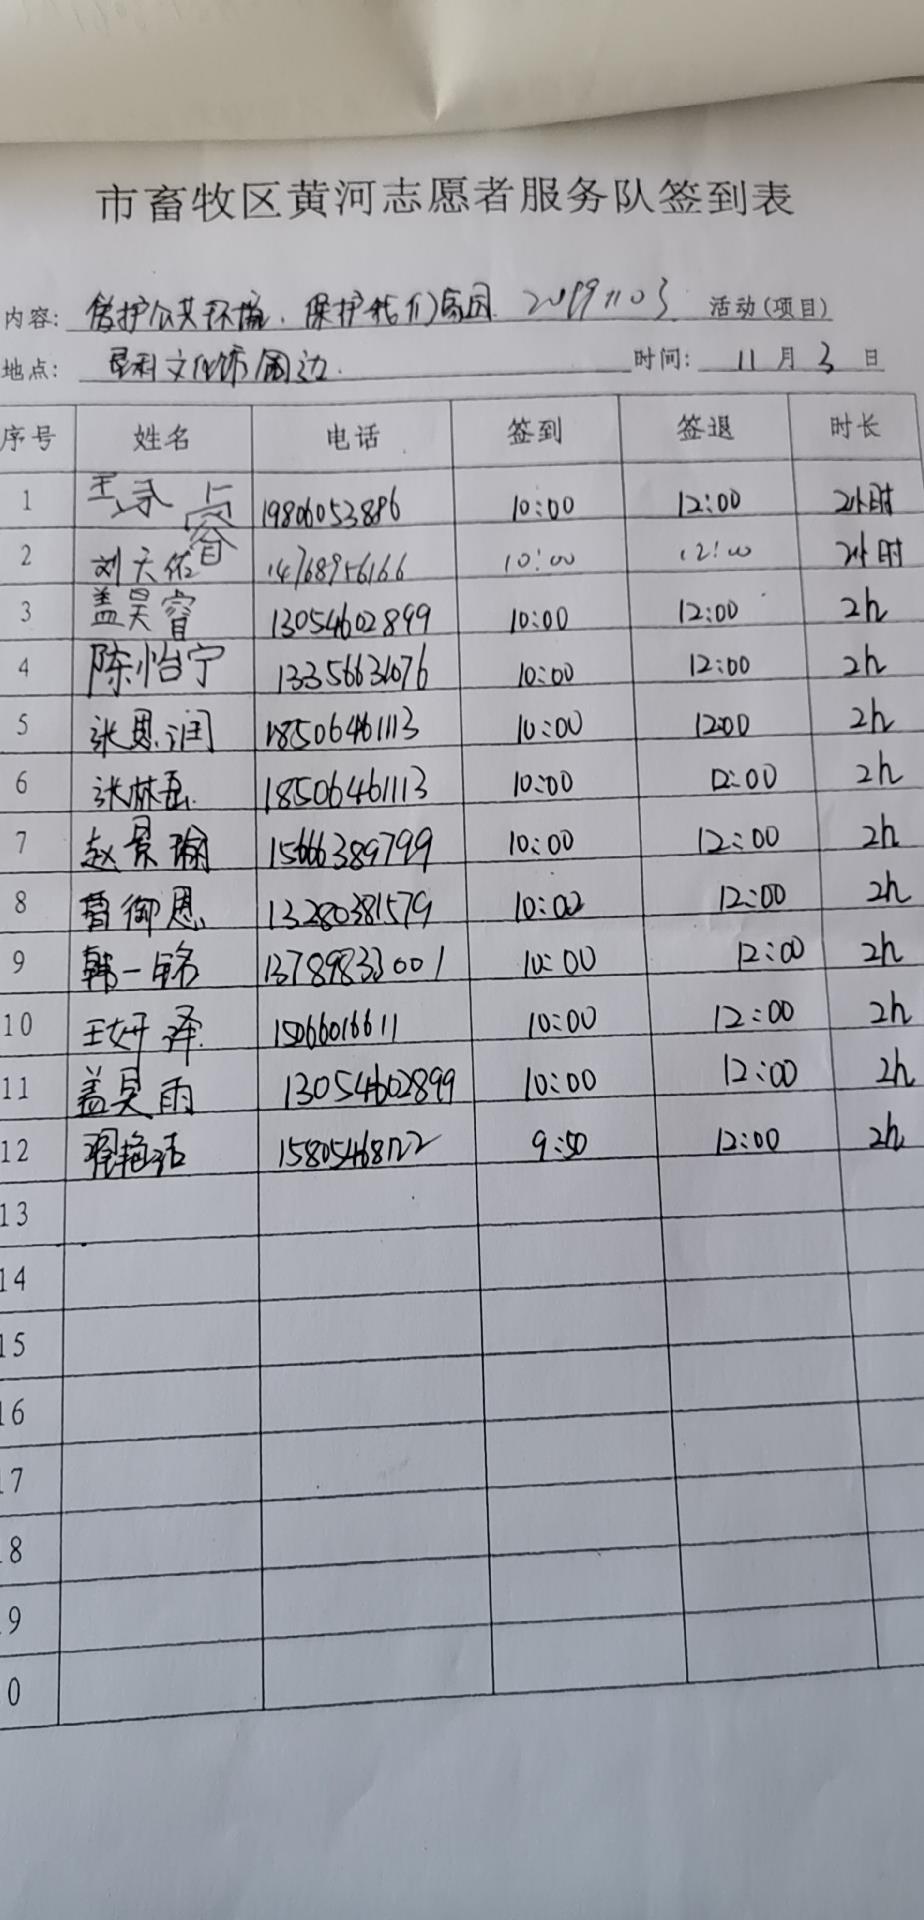 市畜牧区黄河志愿者服务队签到表
内容: 维护公共环境、保护我们家园 20191103 活动(项目)
地点: 垦利文化馆周边. 时间: 11 月 3 日
序号 姓名 电话 签到 签退 时长
1 19806053886 10:00 12:00 2小时
2 刘天佑 14768956166 10:00 12:00 2小时
3 盖昊睿 13054602899 10:00 12:00 2h
4 陈怡宁 13356631076 10:00 12:00 2h
5 张恩润 18506461113 10:00 1200 2h
6 张林 18506461113 10:00 12:00 2h
7 赵景瑜 15666389799 10:00 12:00 2h
8 曹御恩 13280381579 10:00 12:00 2h
9 韩一铭 13789833001 10:00 12:00 2h
10 王妍泽 15066016611 10:00 12:00 2h
11 盖昊雨 13054602899 10:00 12:00 2h
12 15805468122 9:50 12:00 2h
13
14
15
16
17
8
9
0